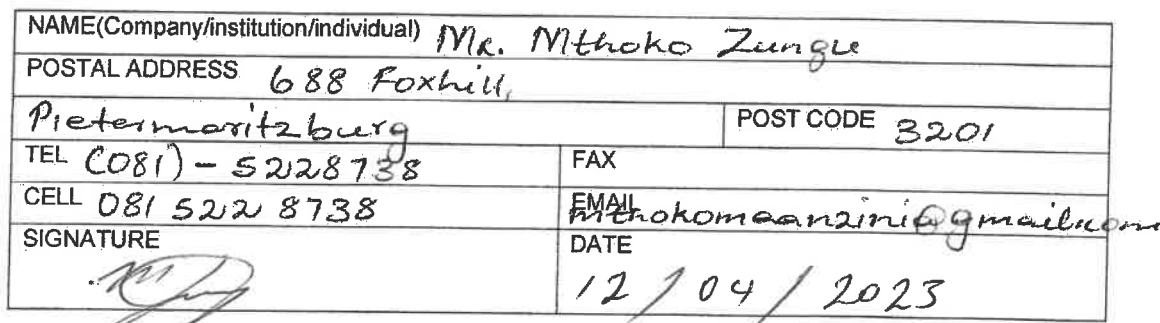 NAME(Company/institution/individual) Mr. Mthoko Zungu
POSTAL ADDRESS 688 Foxhill,
Pietermaritzburg POST CODE 3201
TEL (081) - 5228738 FAX
CELL 081 522 8738 EMAIL
SIGNATURE DATE
12 / 04 / 2023